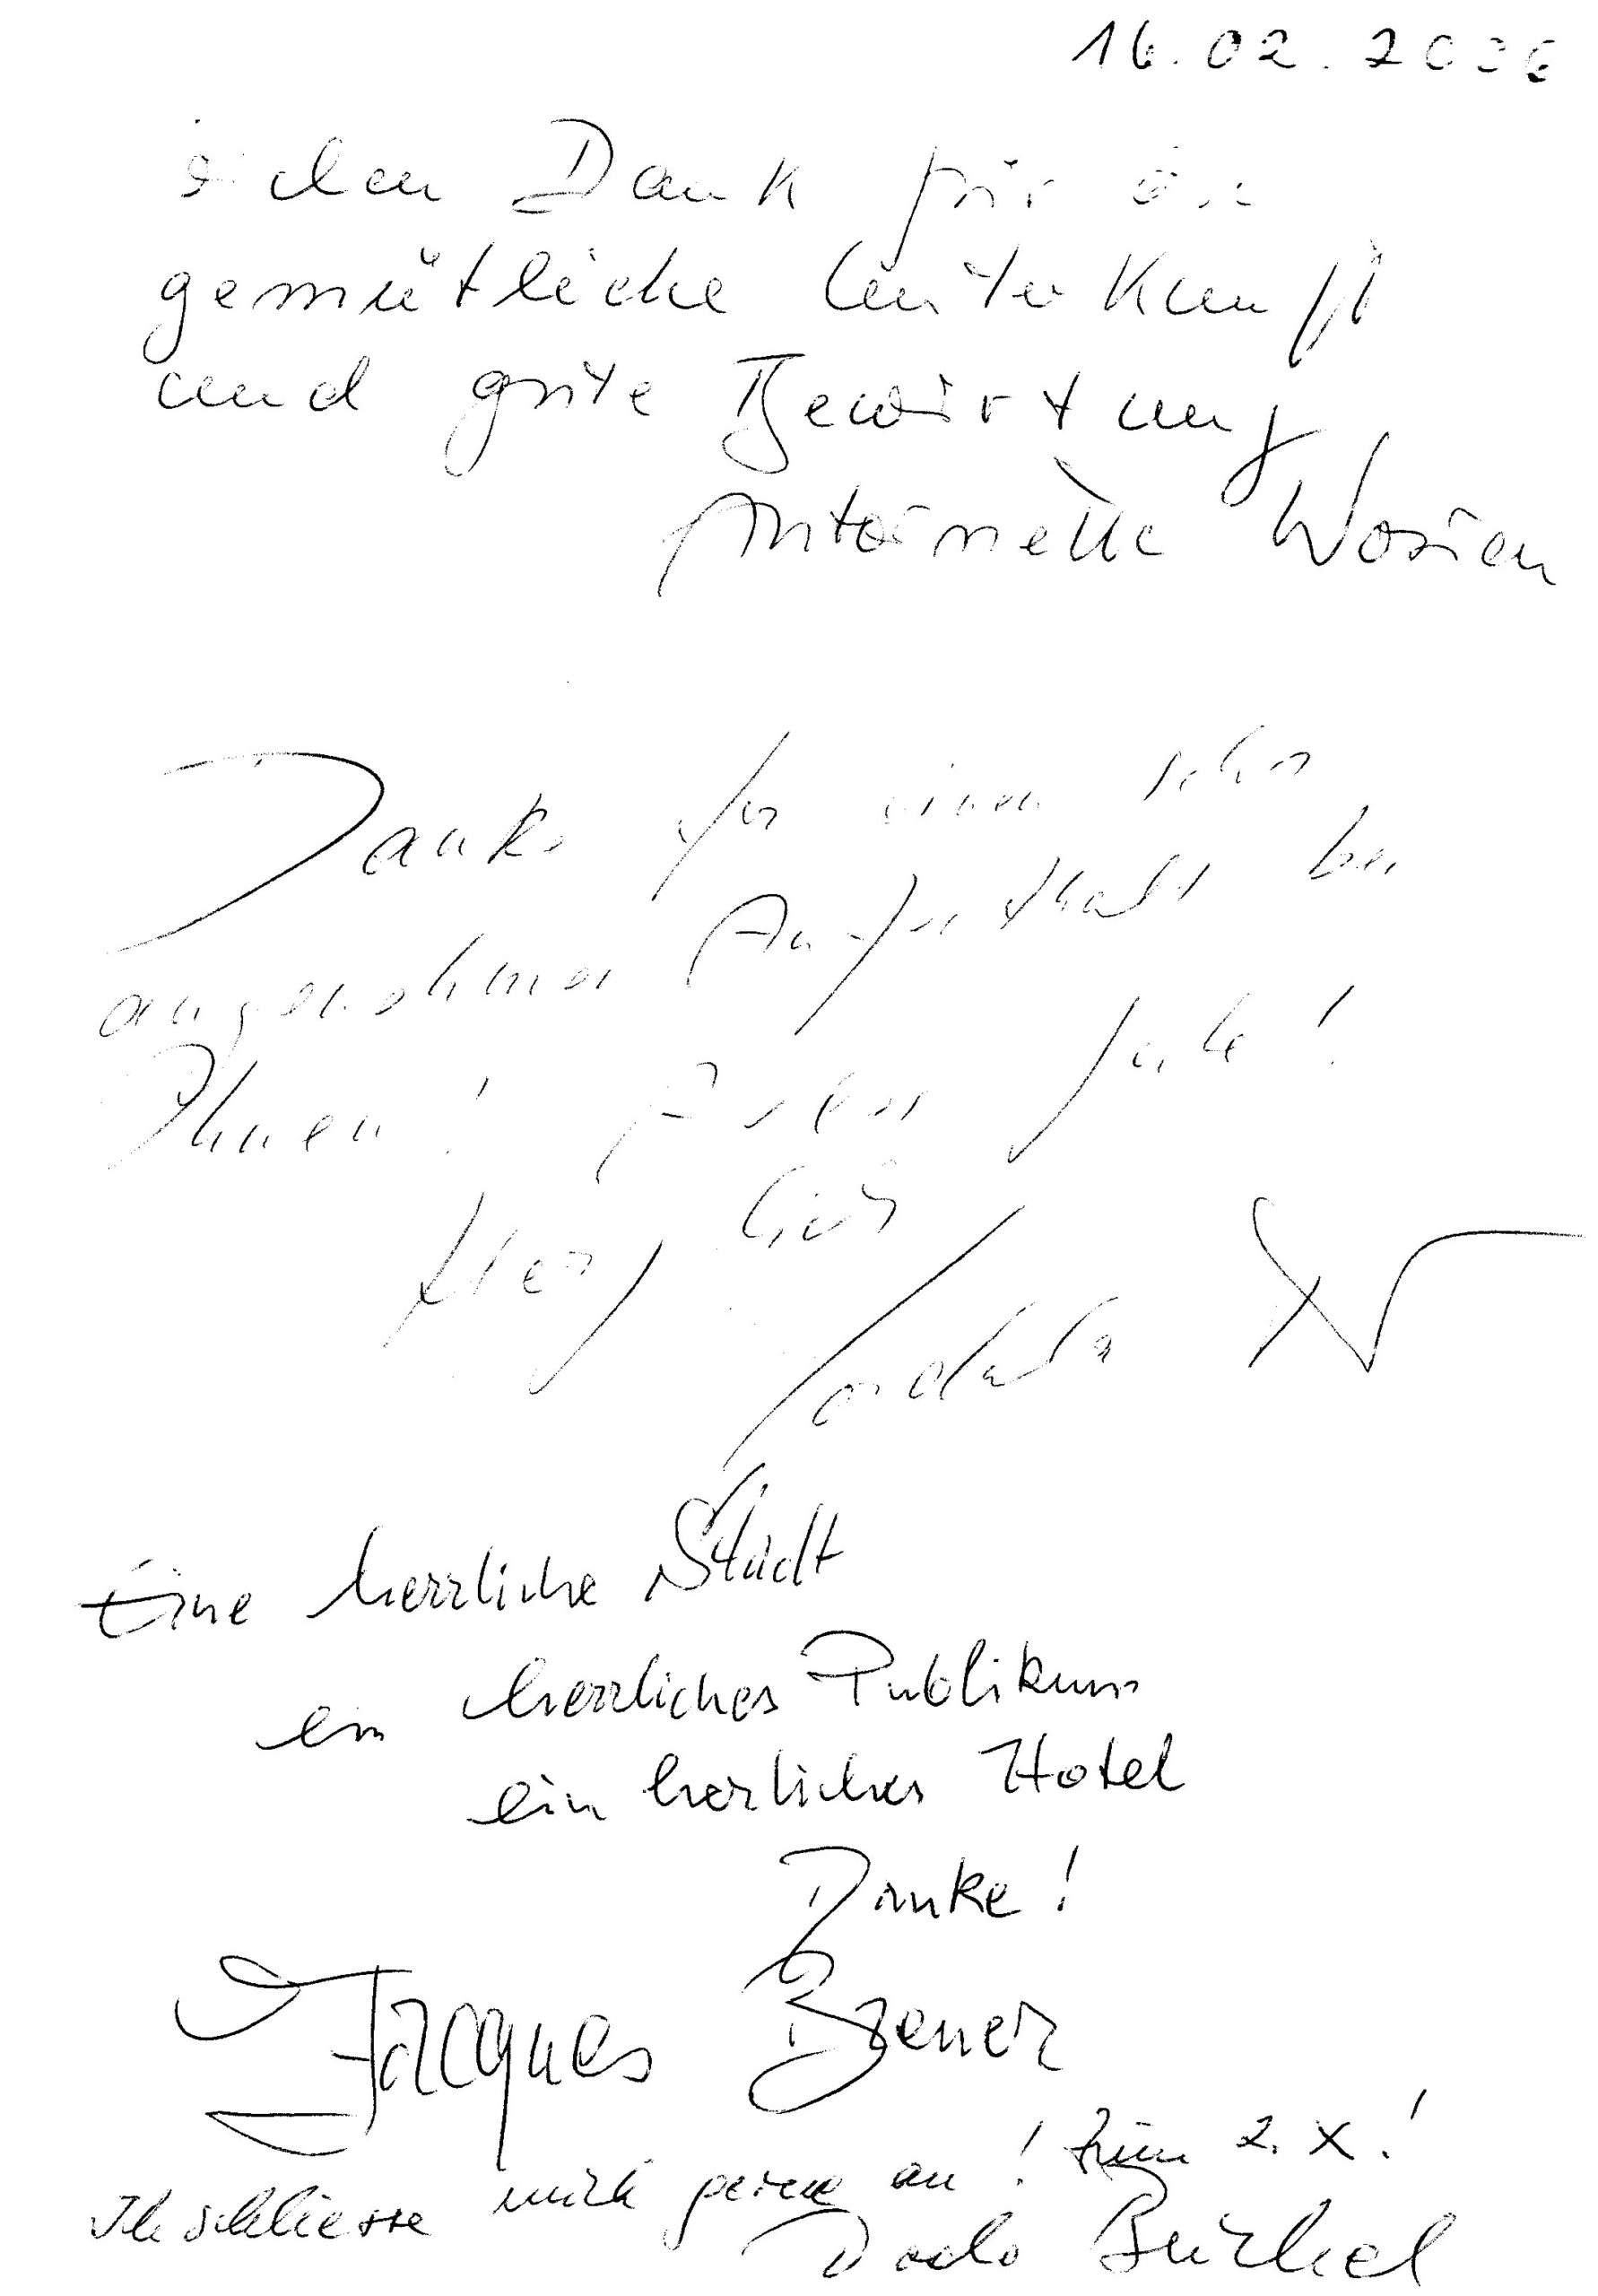 16.02.2006
Dank für die
gemütliche Unterkunft
und gute Bewirtung
Antoinette Wosien
Danke für einen sehr
angenehmen Aufenthalt bei
Ihnen! Alles Gute!
Herzlich
Eine herrliche Stadt
ein herrliches Publikum
ein herrliches Hotel
Danke!
Jacques Brener
Ich schliesse mich gerne an! Zum 2. X!
Dodo Bürkel